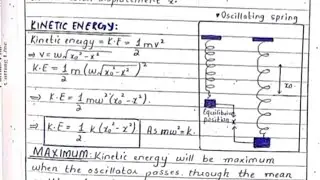 displacement x.
KINETIC ENERGY:
Oscillating spring
Kinetic enagy = K.E = 1/2 mv²
⇒ v = ω√x₀² - x²
K.E = 1/2 m (ω√x₀² - x²)²
⇒ K.E = 1/2 mω² (x₀² - x²).
⇒ K.E = 1/2 k (x₀² - x²) As mω² = k.
x₀
Equilibrium
position
MAXIMUM: Kinetic energy will be maximum
when the oscillator passes through the mean